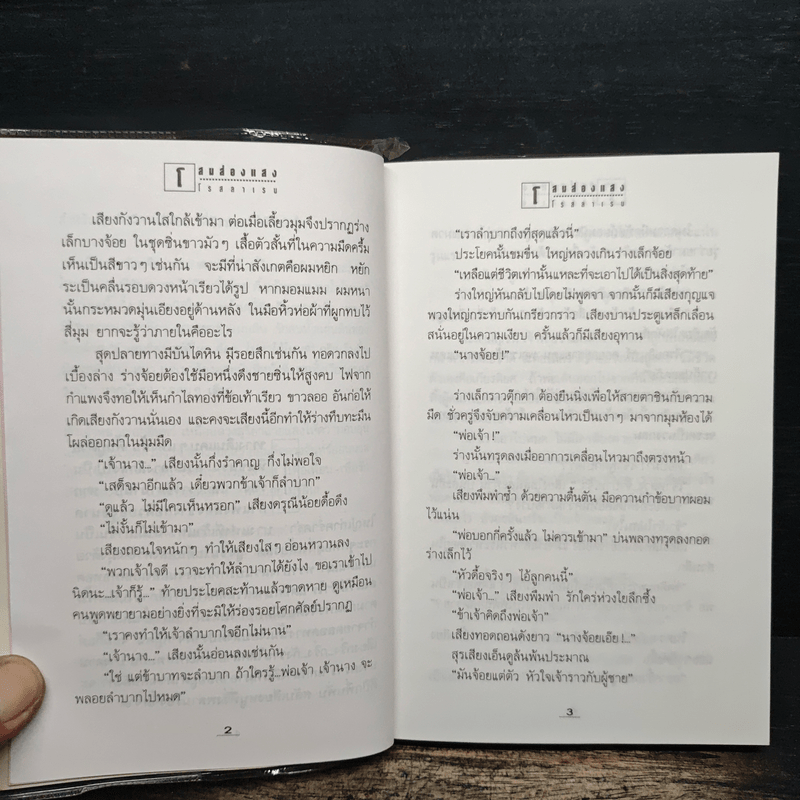 โ สนส่องแสง
โรสลาเรน
เสียงกังวานใสใกล้เข้ามา ต่อเมื่อเลี้ยวมุมจึงปรากฏร่าง
เล็กบางจ้อย ในชุดซิ่นขาวมัวๆ เสื้อตัวสั้นที่ในความมืดครึ้ม
เห็นเป็นสีขาวๆ เช่นกัน จะมีที่น่าสังเกตคือผมหยิก หยัก
ระเป็นคลื่นรอบดวงหน้าเรียวได้รูป หากมอมแมม ผมหนา
นั้นกระหมวดมุ่นเอียงอยู่ด้านหลัง ในมือหิ้วห่อผ้าที่ผูกทบไว้
สี่มุม ยากจะรู้ว่าภายในคืออะไร
สุดปลายทางมีบันไดหิน มีรอยสึกเช่นกัน ทอดวกลงไป
เบื้องล่าง ร่างจ้อยต้องใช้มือหนึ่งดึงชายซิ่นให้สูงคบ ไฟจาก
กำแพงจึงทอให้เห็นกำไลทองที่ข้อเท้าเรียว ขาวลออ อันก่อให้
เกิดเสียงกังวานนั่นเอง และคงจะเสียงนี้อีกทำให้ร่างทึบทะมึน
โผล่ออกมาในมุมมืด
“เจ้านาง...” เสียงนั้นกึ่งรำคาญ กึ่งไม่พอใจ
“เสด็จมาอีกแล้ว เดี๋ยวพวกข้าเจ้าก็ลำบาก”
“ดูแล้ว ไม่มีใครเห็นหรอก” เสียงดรุณีน้อยดื้อดึง
“ไม่งั้นก็ไม่เข้ามา”
เสียงถอนใจหนักๆ ทำให้เสียงใสๆ อ่อนหวานลง
“พวกเจ้าใจดี เราจะทำให้ลำบากได้ยังไง ขอเราเข้าไป
นิดนะ...เจ้าก็รู้...” ท้ายประโยคสะท้านแล้วขาดหาย ดูเหมือน
คนพูดพยายามอย่างยิ่งที่จะมิให้ร่องรอยโศกศัลย์ปรากฏ
“เราคงทำให้เจ้าลำบากใจอีกไม่นาน”
“เจ้านาง...” เสียงนั้นอ่อนลงเช่นกัน
“ใช่ แต่ข้าบาทจะลำบาก ถ้าใครรู้...พ่อเจ้า เจ้านาง จะ
พลอยลำบากไปหมด”
2
โ สนส่องแสง
โรสลาเรน
“เราลำบากถึงที่สุดแล้วนี่”
ประโยคนั้นขมขื่น ใหญ่หลวงเกินร่างเล็กจ้อย
“เหลือแต่ชีวิตเท่านั้นแหละที่จะเอาไปได้เป็นสิ่งสุดท้าย”
ร่างใหญ่หันกลับไปโดยไม่พูดจา จากนั้นก็มีเสียงกุญแจ
พวงใหญ่กระทบกันเกรียวกราว เสียงบานประตูเหล็กเลื่อน
สนั่นอยู่ในความเงียบ ครั้นแล้วก็มีเสียงอุทาน
“นางจ้อย!”
ร่างเล็กราวตุ๊กตา ต้องยืนนิ่งเพื่อให้สายตาชินกับความ
มืด ชั่วครู่จึงจับความเคลื่อนไหวเป็นเงาๆ มาจากมุมห้องได้
“พ่อเจ้า!”
ร่างนั้นทรุดลงเมื่ออาการเคลื่อนไหวมาถึงตรงหน้า
“พ่อเจ้า...”
เสียงพึมพำซ้ำ ด้วยความตื้นตัน มือควานกำข้อบาทผอม
ไว้แน่น
“พ่อบอกกี่ครั้งแล้ว ไม่ควรเข้ามา” บ่นพลางทรุดลงกอด
ร่างเล็กไว้
“หัวดื้อจริงๆ ไอ้ลูกคนนี้”
“พ่อเจ้า...” เสียงพึมพำ รักใคร่ห่วงใยลึกซึ้ง
“ข้าเจ้าคิดถึงพ่อเจ้า”
เสียงทอดถอนดังยาว “นางจ้อยเอ๊ย!...”
สุรเสียงเอ็นดูล้นพ้นประมาณ
“มันจ้อยแต่ตัว หัวใจเจ้าราวกับผู้ชาย”
3